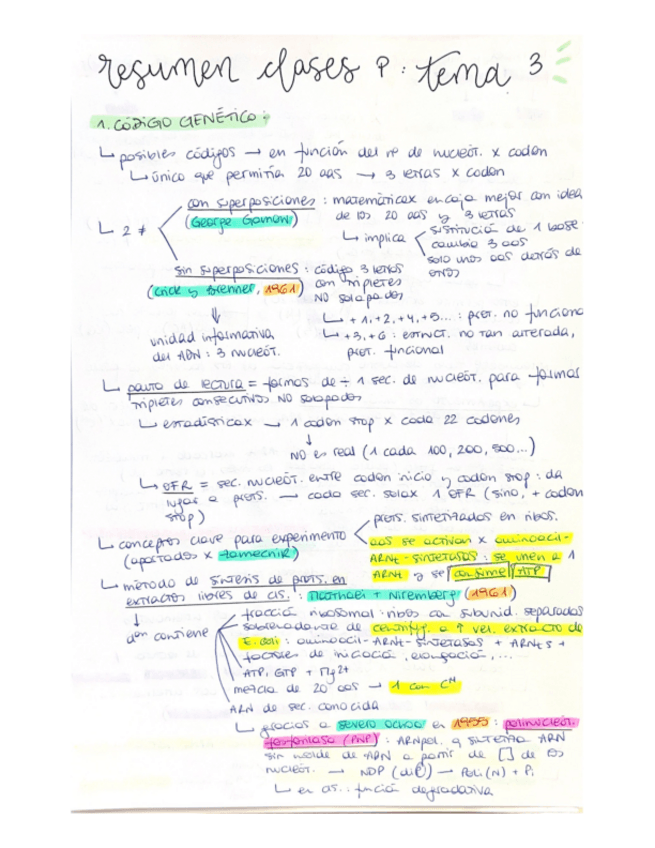 resumen clases P: tema 3
1. CÓDIGO GENÉTICO:
↳ posibles códigos → en función del nº de nucleót. x codon
↳ único que permitiría 20 aas → 3 letras x codon
↳ 2 ≠
con superposiciones : matemáticax encaja mejor con idea
(George Gamow) de los 20 aas y 3 letras
↳ implica
sustitución de 1 base
cambia 3 aas
solo unos aas detrás de
otros
sin superposiciones : código 3 letras
(Crick y Brenner, 1961) con tripletes
NO solapados
⇓
unidad informativa
del ADN : 3 nucleót.
↳ +1, +2, +4, +5... : prot. no funciona
↳ +3, +6 : estruct. no tan alterada,
prot. funcional
↳ pauta de lectura = formas de ÷ 1 sec. de nucleót. para formar
tripletes consecutivos NO solapados
↳ estadísticax → 1 codon stop x cada 22 codones
↓
NO es real (1 cada 100, 200, 500...)
↳ OFR = sec. nucleót. entre codon inicio y codon stop : da
lugar a prots. → cada sec. solax 1 OFR (sino, + codon
stop)
↳ conceptos clave para experimento
(aportados x Zamecnik)
prots. sintetizadas en ribos.
aas se activan x aminoacil-
ARNt-sintetasas : se unen a 1
ARNt y se consume ATP
↳ método de síntesis de prots. en
extractos libres de cls. : Matthaei + Niremberg (1961)
↓
debe contiene
fracción ribosomal : ribos con subunid. separadas
sobrenadante de centrifug. a ↑ vel. extracto de
E. coli : aminoacil-ARNt-sintetasas + ARNts +
factores de iniciació, elongación, ...
ATP, GTP + Mg2+
mezcla de 20 aas → 1 con C¹⁴
ARN de sec. conocida
↳ gracias a Severo Ochoa en 1955 : polinucleót.
fosforilasa (PNP) : ARNpol. q sintetiza ARN
sin molde de ADN a partir de [] de los
nucleót. → NDP (diⓅ) → Poli(N) + Pi
↳ en cls. : función degradativa